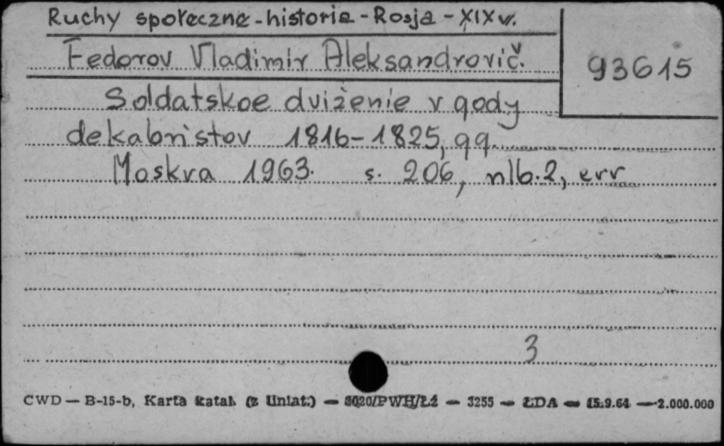 Ruchy społeczne - historia - Rosja - XIX w.
Fedorov Vladimir Aleksandrovič.
93615
Soldatskoe dviženie v gody
dekabristov 1816-1825, gg.
Moskva 1963. s. 206, nlb. 2, err
3
CWD — B-15-b, Karta katal. (z liniat.) — 8020/PWH/Łź — 3255 — ŁDA — 15.9.64 — 2.000.000